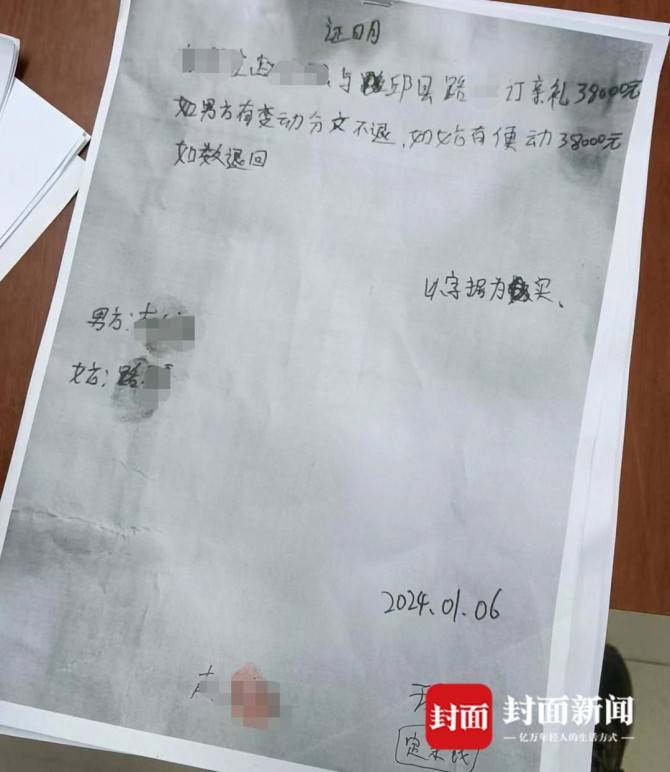 证明
与邱县路 订亲礼38000元
如男方有变动分文不退,如女方有便动38000元
如数退回
以字据为
男方:
女方:路
2024.01.06
封面 封面新闻
亿万年轻人的生活方式